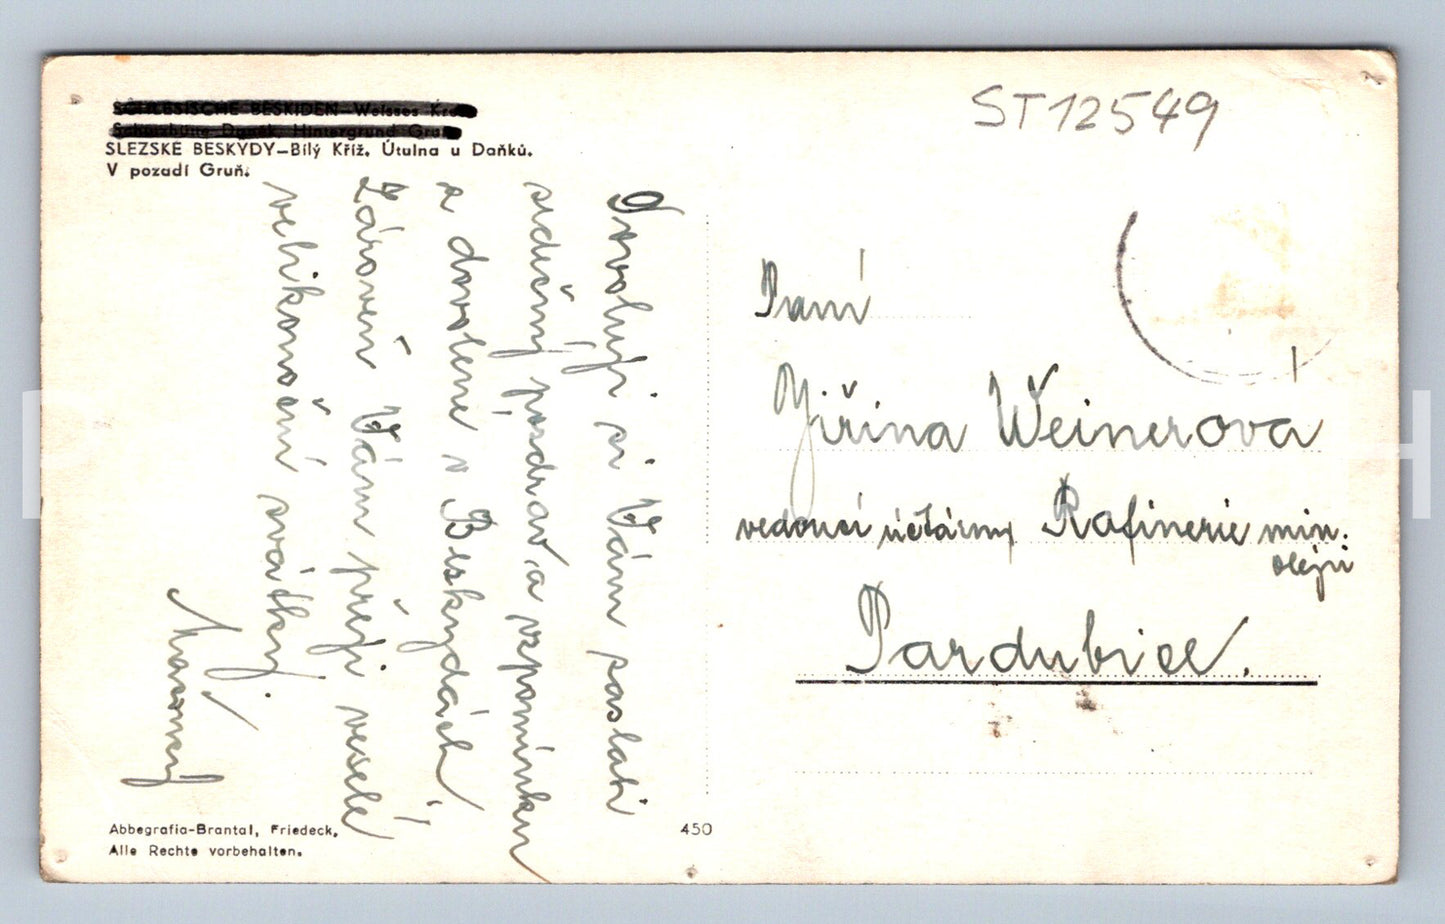 SCHLESISCHE BESKIDEN—Weisses Kre
Schutzhütte Daněk. Hintergrund Gru
SLEZSKÉ BESKYDY—Bílý Kříž. Útulna u Daňků.
V pozadí Gruň.
ST12549
Dovoluji si Vám poslati
srdečný pozdrav a vzpomínku
z dovolené v Beskydách
Zároveň Vám přeji veselé
velikonoční svátky.
Paní
Jiřina Weinerová
vedoucí účtárny Rafinerie min.
olejů
Pardubice.
Abbegrafia-Brantal, Friedeck.
Alle Rechte vorbehalten.
450